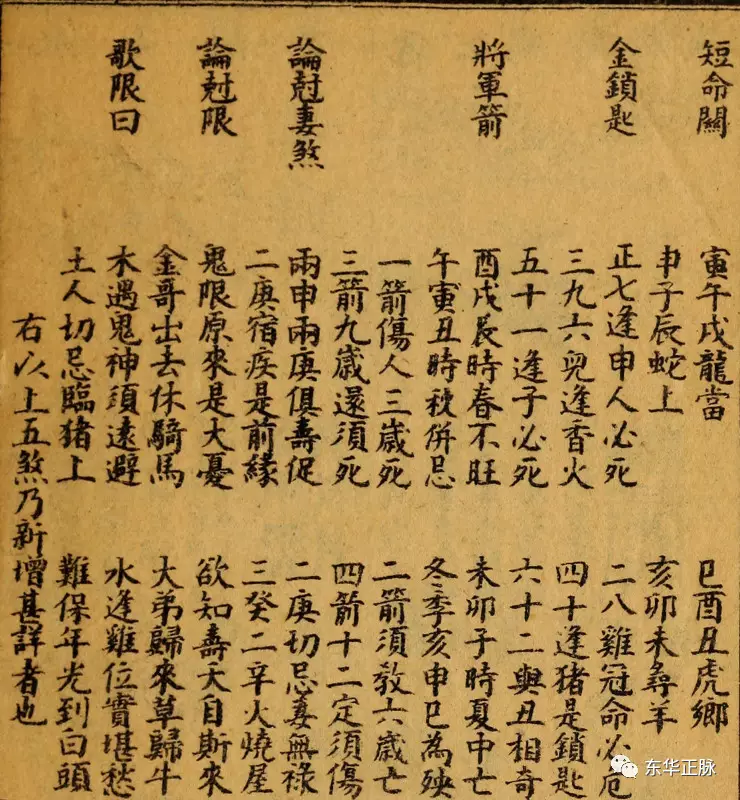 短命關 寅午戌龍當 巳酉丑虎鄉
申子辰蛇上 亥卯未尋羊
金鎖匙 正七逢申人必死 二八雞冠命必危
三九六兒逢香火 四十逢猪是鎖匙
五十一逢子必死 六十二與丑相奇
將軍箭 酉戌辰時春不旺 未卯子時夏中亡
午寅丑時秋併忌 冬季亥申巳為殃
一箭傷人三歲死 二箭須教六歲亡
三箭九歲還須死 四箭十二定須傷
論尅妻煞 兩申兩庚俱壽促 二庚切忌妻無祿
二庚宿疾是前緣 三癸二辛火燒屋
論尅限 鬼限原來是大憂 欲知壽夭自斯來
金哥出去休騎馬 大弟歸來草歸牛
歌限曰 木遇鬼神須遠避 水逢雞位實堪愁
土人切忌臨猪上 難保年光到白頭
右以上五煞乃新增甚詳者也
东华正脉